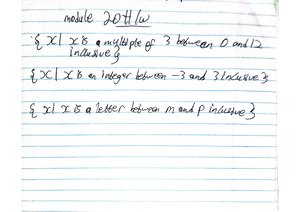 module 20 H/W
{x| x is a multiple of 3 between 0 and 12
inclusive}
{x| x is an integer between -3 and 3 Inclusive}
{x| x is a letter between m and p inclusive}